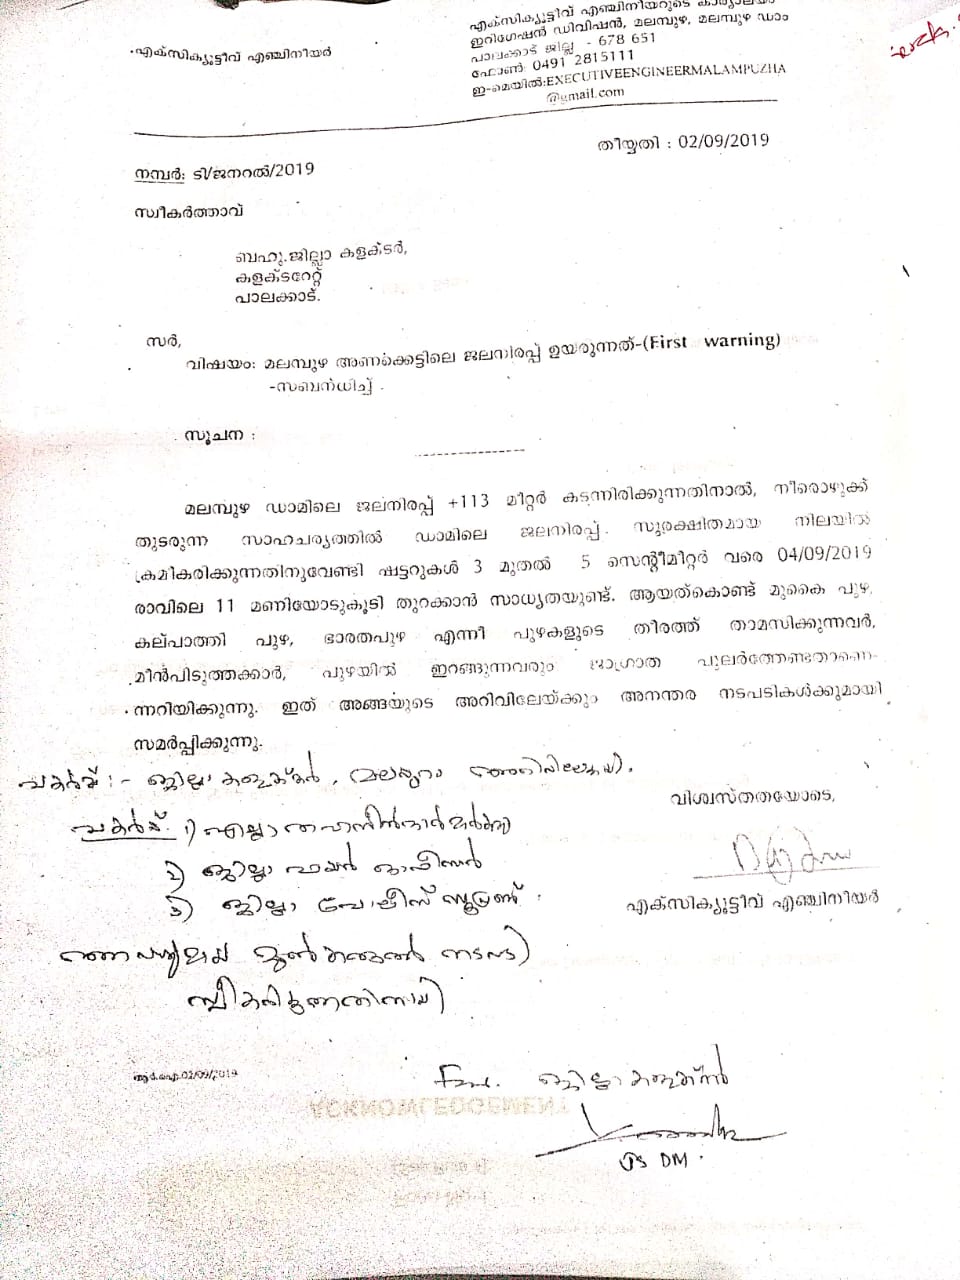 എക്സിക്യൂട്ടീവ് എഞ്ചിനീയർ
എക്സിക്യൂട്ടീവ് എഞ്ചിനീയറുടെ കാര്യാലയം
ഇറിഗേഷൻ ഡിവിഷൻ, മലമ്പുഴ, മലമ്പുഴ ഡാം
പാലക്കാട് ജില്ല - 678 651
ഫോൺ: 0491 2815111
ഇ-മെയിൽ:EXECUTIVEENGINEERMALAMPUZHA
@gmail.com
തീയ്യതി : 02/09/2019
നമ്പർ: ടി/ജനറൽ/2019
സ്വീകർത്താവ്
ബഹു.ജില്ലാ കളക്ടർ,
കളക്ടറേറ്റ്
പാലക്കാട്.
സർ,
വിഷയം: മലമ്പുഴ അണക്കെട്ടിലെ ജലനിരപ്പ് ഉയരുന്നത്-(First warning)
-സബന്ധിച്ച് .
സൂചന :
മലമ്പുഴ ഡാമിലെ ജലനിരപ്പ് +113 മീറ്റർ കടന്നിരിക്കുന്നതിനാൽ, നീരൊഴുക്ക്
തുടരുന്ന സാഹചര്യത്തിൽ ഡാമിലെ ജലനിരപ്പ് . സുരക്ഷിതമായ നിലയിൽ
ക്രമീകരിക്കുന്നതിനുവേണ്ടി ഷട്ടറുകൾ 3 മുതൽ 5 സെന്റീമീറ്റർ വരെ 04/09/2019
രാവിലെ 11 മണിയോടുകൂടി തുറക്കാൻ സാധ്യതയുണ്ട്. ആയത്കൊണ്ട് മുകൈ പുഴ,
കല്പാത്തി പുഴ, ഭാരതപുഴ എന്നീ പുഴകളുടെ തീരത്ത് താമസിക്കുന്നവർ,
മീൻപിടുത്തക്കാർ, പുഴയിൽ ഇറങ്ങുന്നവരും ജാഗ്രാത പുലർത്തേണ്ടതാണെ-
ന്നറിയിക്കുന്നു. ഇത് അങ്ങയുടെ അറിവിലേയ്ക്കും അനന്തര നടപടികൾക്കുമായി
സമർപ്പിക്കുന്നു.
പകർപ്പ് :- ജില്ലാ കളക്ടർ, മലപ്പുറം
വിശ്വസ്തതയോടെ,
പകർപ്പ്. 1) എല്ലാ തഹസിൽദാർമാർക്കും
2) ജില്ലാ ഫയർ ഓഫീസർ
3) ജില്ലാ പോലീസ്
എക്സിക്യൂട്ടീവ് എഞ്ചിനീയർ
മുൻകരുതൽ നടപടി
സ്വീകരിക്കുന്നതിനായി
ആർ.ഐ.02/09/2019
For. ജില്ലാ കളക്ടർ
ACKNOWLEDGEMENT
DM.